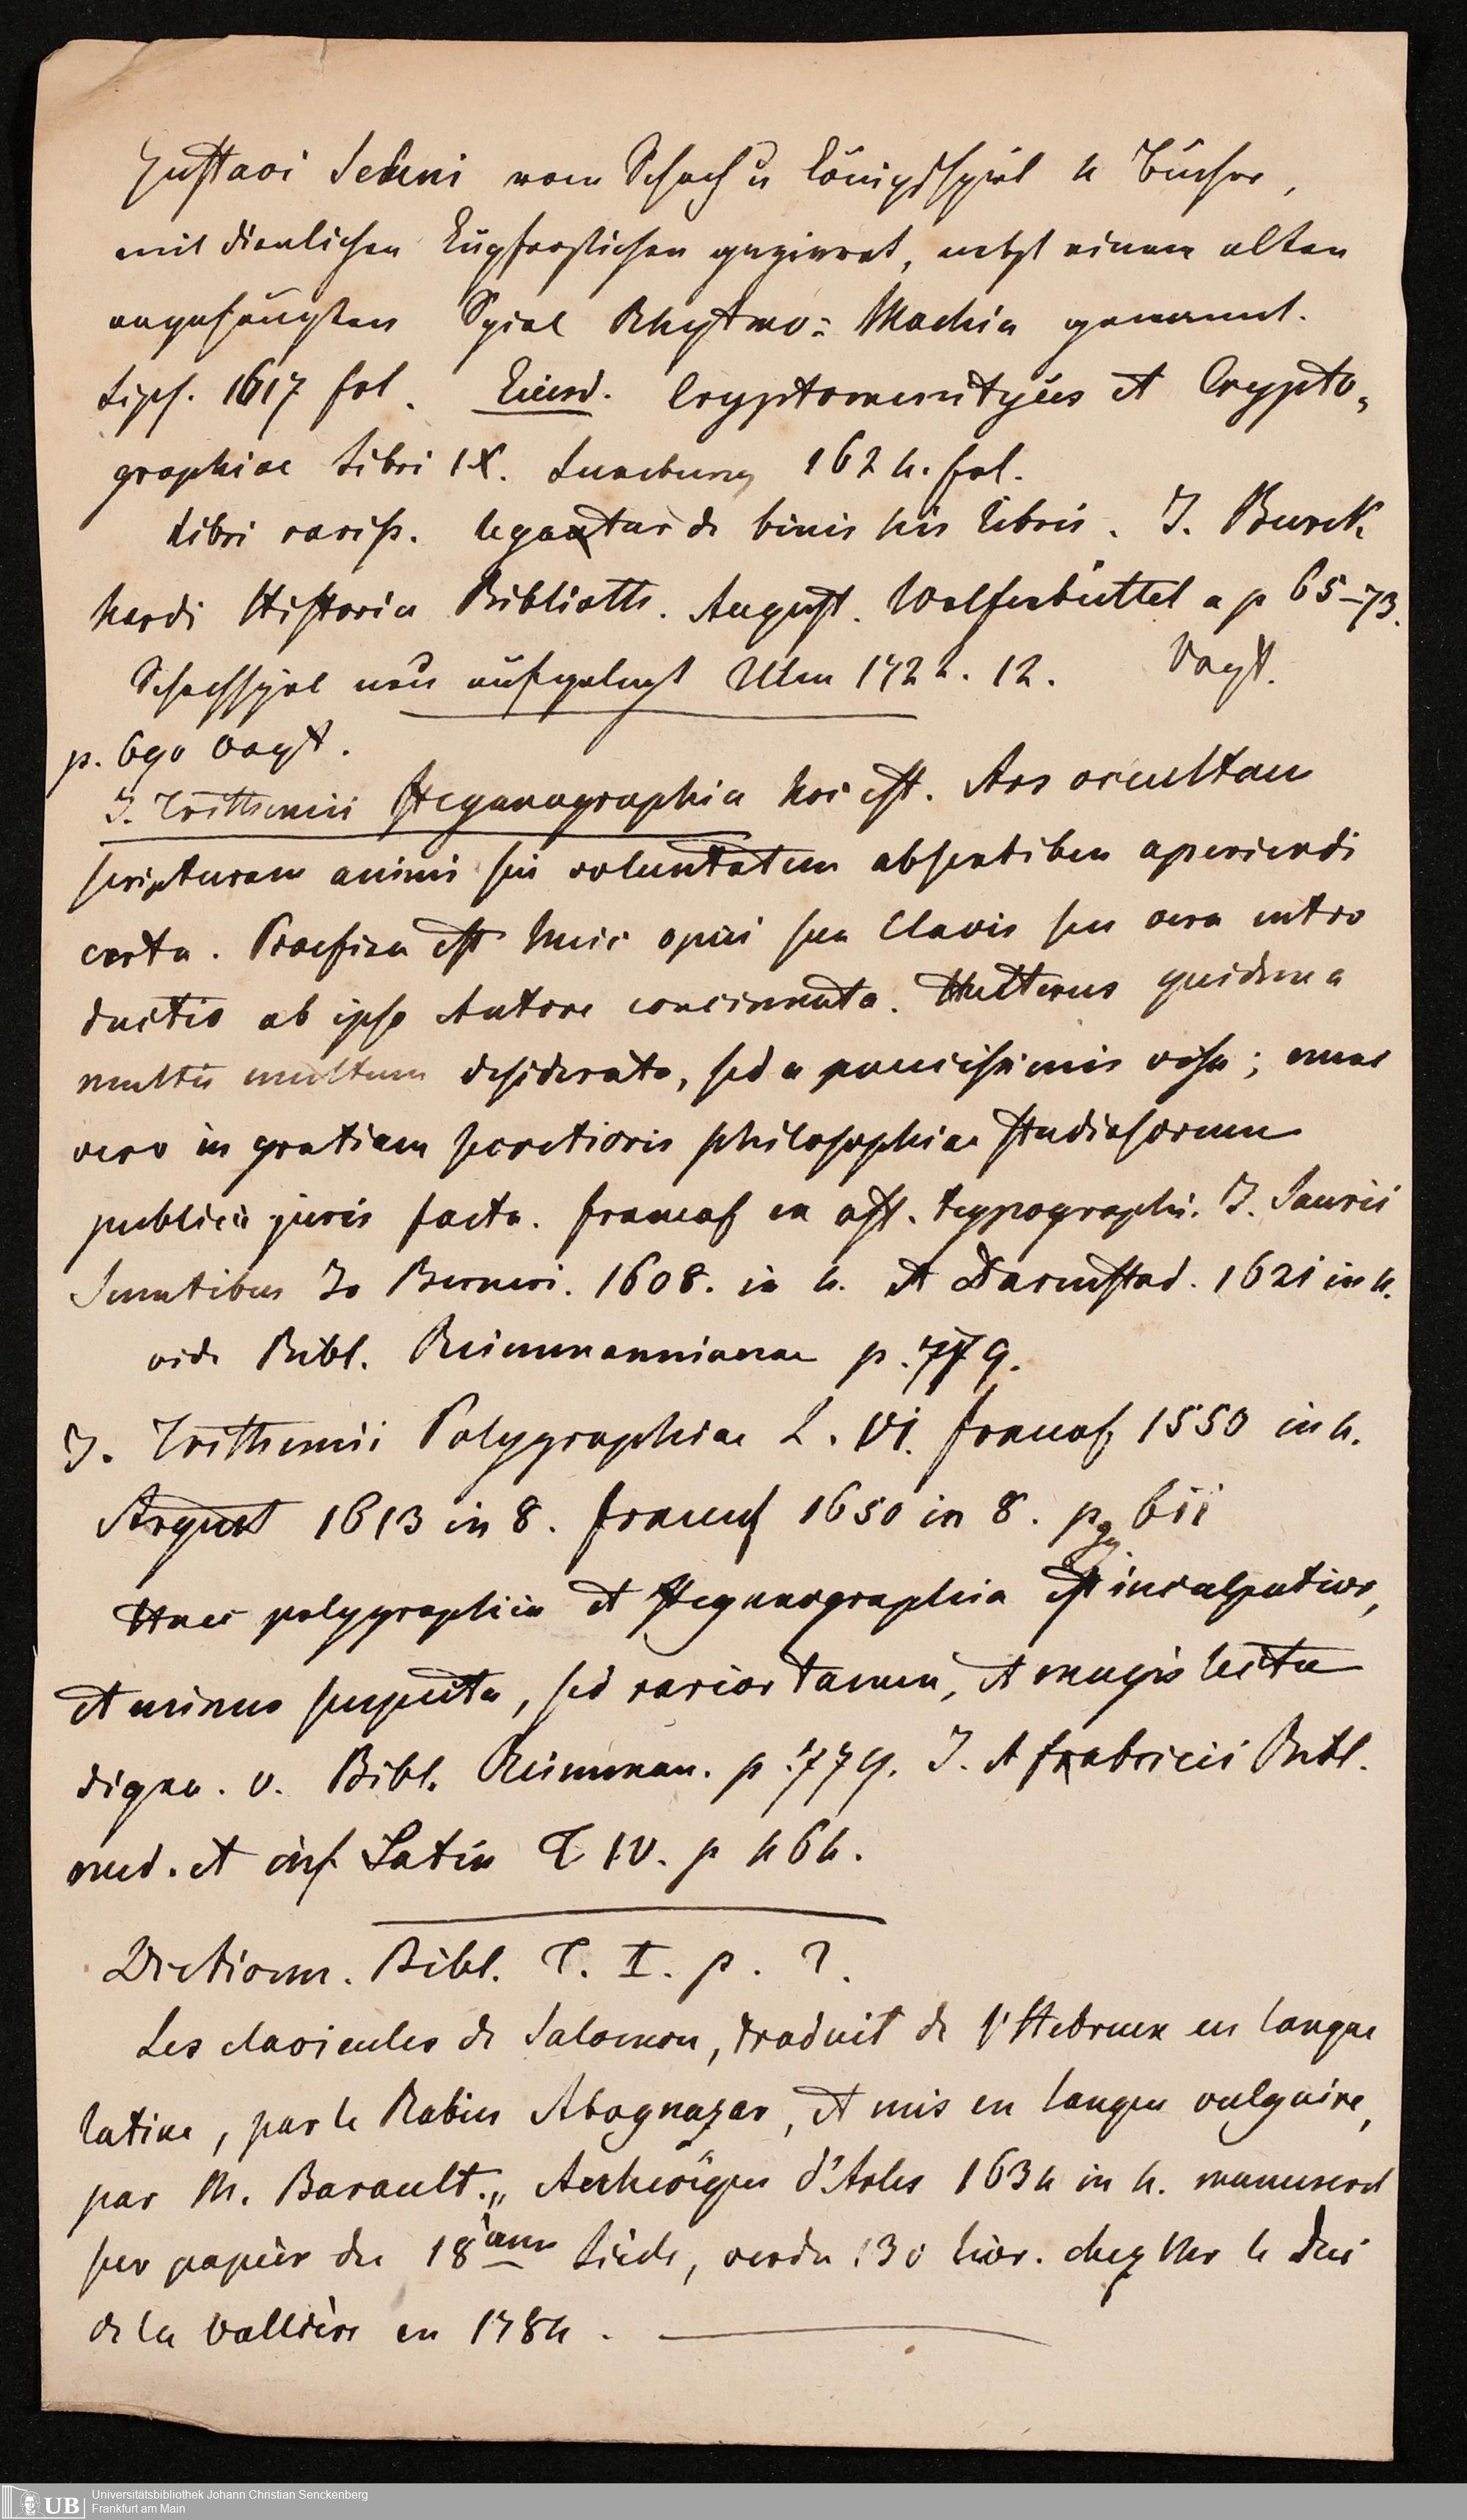 Gustavi Seleni vom Schach u Königsspiel 4 Bücher,
mit dienlichen Kupferstichen gezieret, nebst einem alten
angehängten Spiel Rhytmo= Machia genannt.
Lips. 1617 fol. Eiusd. Cryptomenityces et Crypto=
graphiae Libri IX. Luneburg 1624. fol.
Libri rariss. legantur de binis his libris. J. Burck
hardi Historia Biblioth. August. Wolfenbüttel a p 65–73.
Schachspiel neu aufgelegt Ulm 1722. 12. Vogt.
p. 690 Vogt.
J. Trithemii Steganographia hoc est. Ars occultam
scripturam animi sui voluntatem absentibus aperiendi
certa. Praefixa est huic operi sua Clavis seu vera intro
ductio ab ipso Autore concinnata. Hactenus quidem a
multis multum desiderata, sed a paucissimis visa; nunc
vero in gratiam secretioris philosophiae studiosorum
publici juris facta. Francof ex off. typographi. J. Saurii
Sumtibus Jo Berneri. 1608. in 4. et Darmstad. 1621 in 4.
vide Bibl. Reimmannianae p. 779.
J. Trithemii Polygraphiae L. VI. Francof 1550 in 4.
Argent 1613 in 8. Francof 1650 in 8. pag 611
Haec polygraphia et steganographia est inculpatior,
et minus suspecta, sed rarior tamen, et magis lectu
digna. v. Bibl. Reimman. p. 779. J. A Fabricii Bibl.
med. et inf. Latin T IV. p 464.
Dictionn. Bibl. T. I. p. ?.
Les clavicules de Salomon, traduit de l'Hebreux en langue
latine, par le Rabin Abognazar, et mis en langue vulgaire,
par M. Barault „ Archevêque d'Arles 1634 in 4. manuscrit
sur papier du 18ieme Siècle, vendu 130 livr. chez Mr le Duc
de la Vallière en 1784.
Universitätsbibliothek Johann Christian Senckenberg
Frankfurt am Main
UB